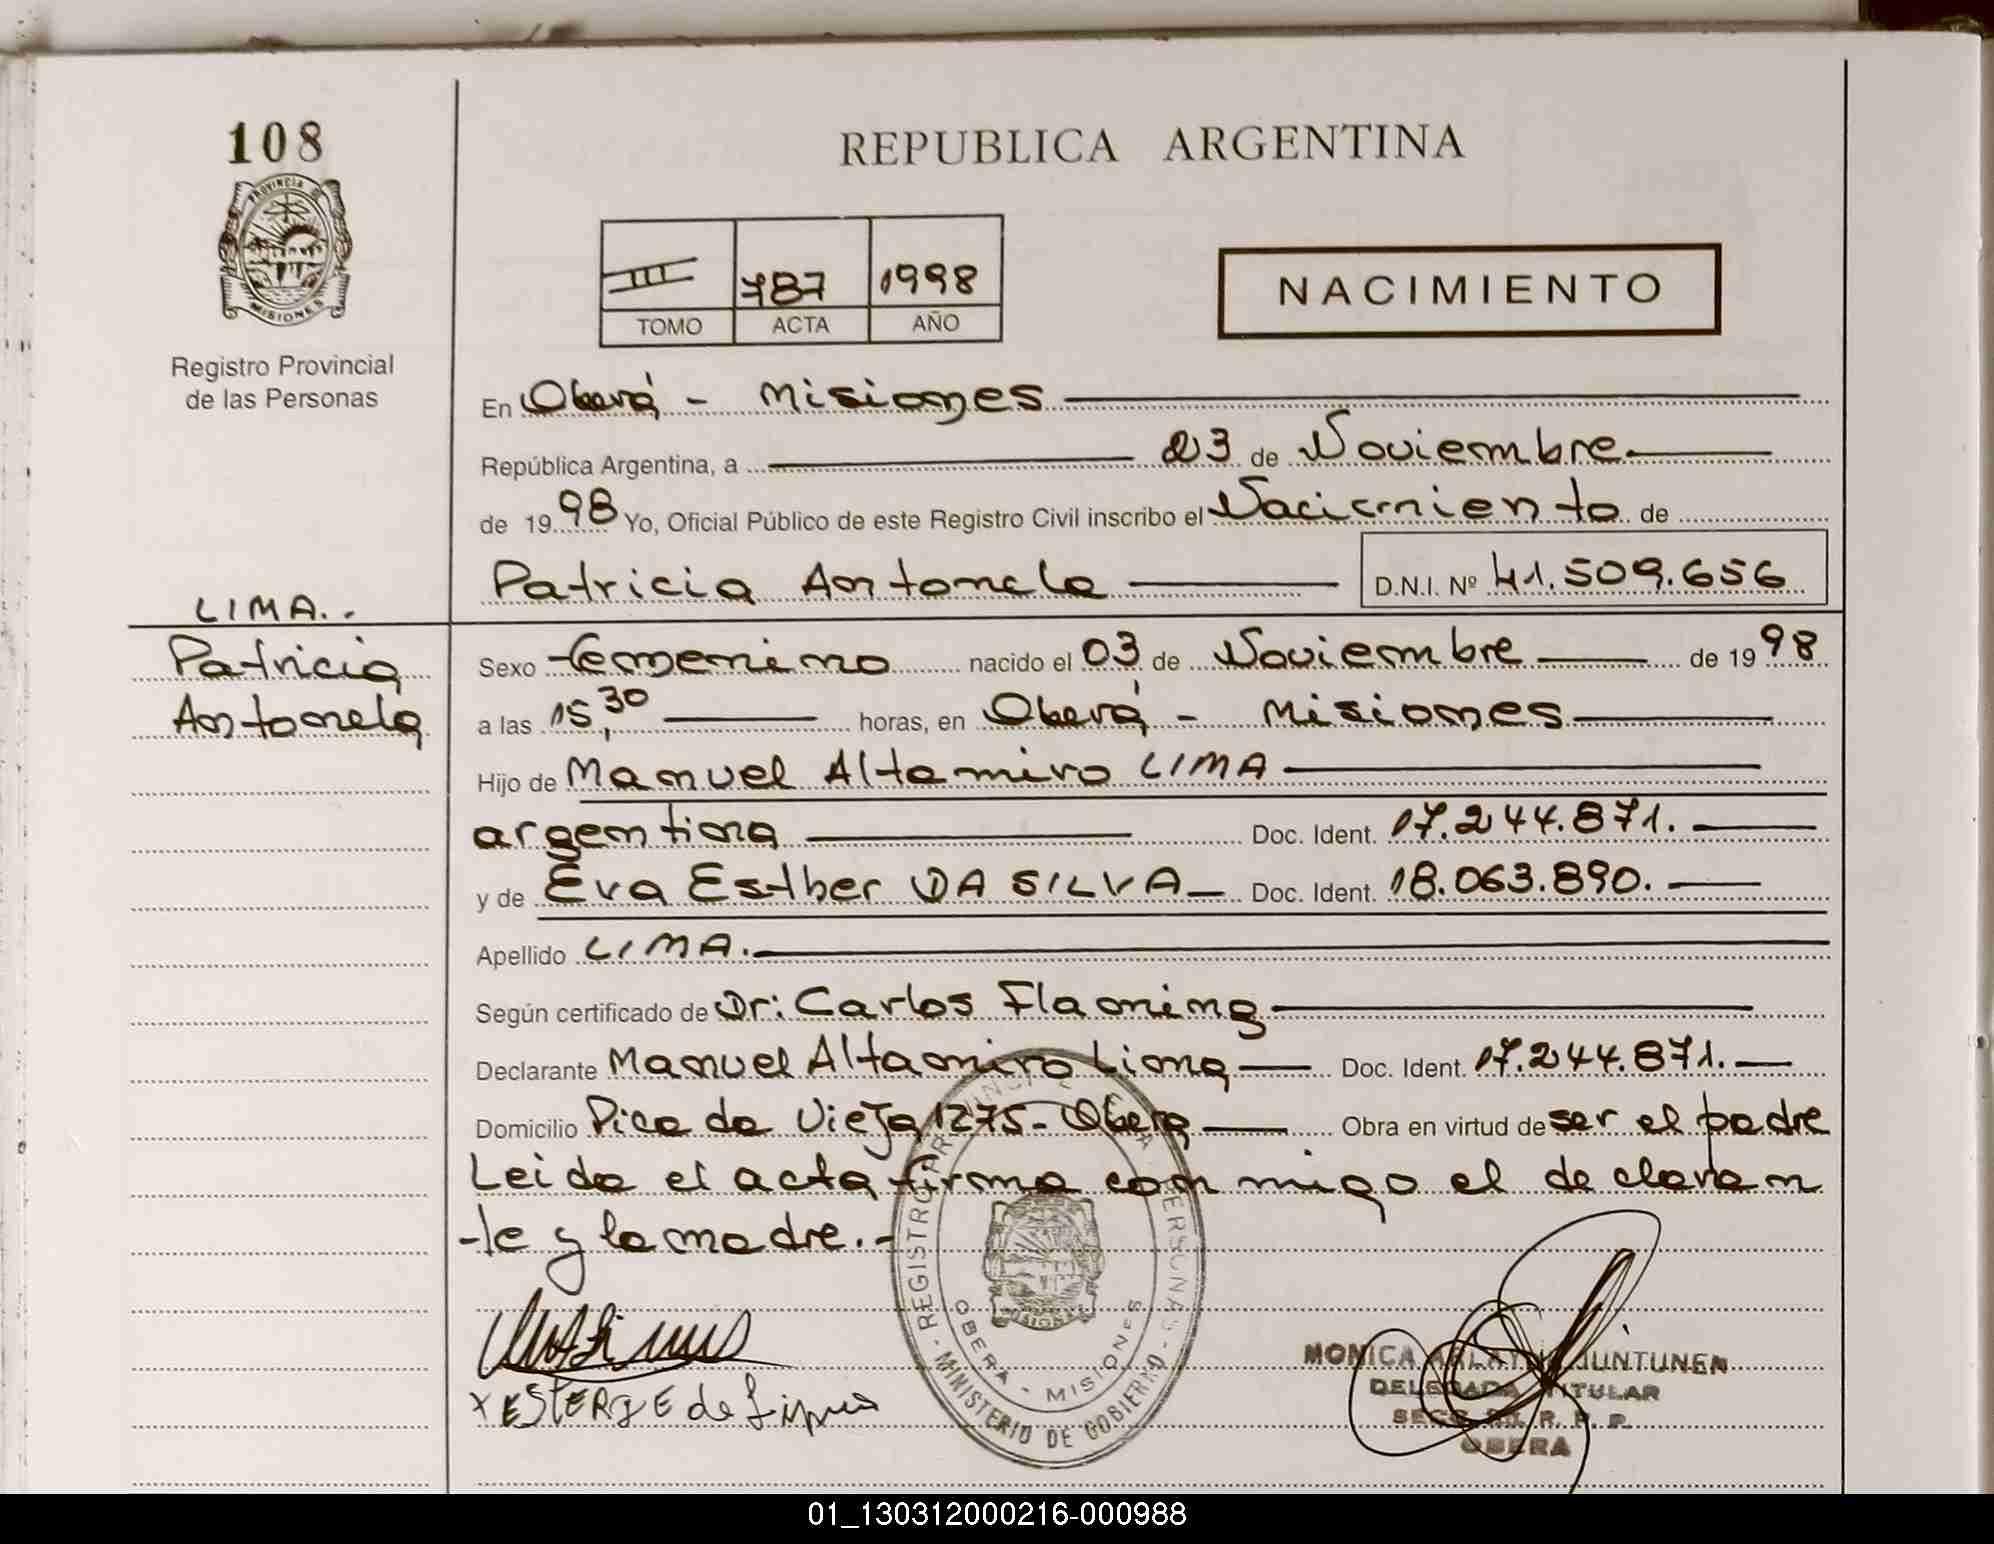 108
PROVINCIA D
MISIONES
Registro Provincial
de las Personas
REPUBLICA ARGENTINA
III 787 1998
TOMO ACTA AÑO
NACIMIENTO
En Oberá - Misiones
República Argentina, a 23 de Noviembre
de 1998 Yo, Oficial Público de este Registro Civil inscribo el Nacimiento de
Patricia Antonela D.N.I. Nº 41.509.656
LIMA.-
Patricia
Antonela
Sexo femenino nacido el 03 de Noviembre de 1998
a las 15,30 horas, en Oberá - Misiones
Hijo de Manuel Altamiro LIMA
argentina Doc. Ident. 17.244.871.
y de Eva Esther DA SILVA Doc. Ident. 18.063.890.
Apellido LIMA.
Según certificado de Dr: Carlos Flaming
Declarante Manuel Altamiro Lima Doc. Ident. 17.244.871.
Domicilio Picada Vieja 1275- Oberá Obra en virtud de ser el padre
Leida el acta firma con migo el declaran
-te y la madre.-
REGISTRO PERSONAS
OBERA - MISIONES
MINISTERIO DE GOBIERNO
MISIONES
x de Lima
MONICA JUNTUNEN
DELEGADA TITULAR
R. P. P.
OBERA
01_130312000216-000988